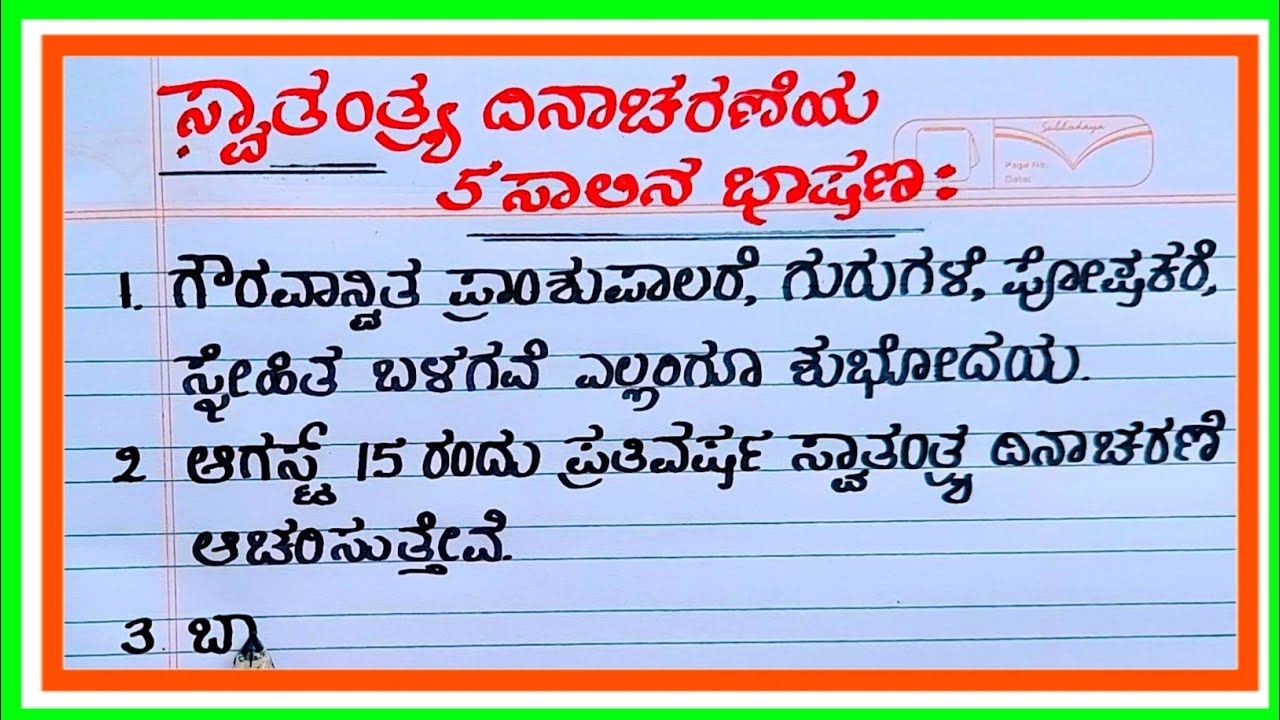 ಸ್ವಾತಂತ್ರ್ಯ ದಿನಾಚರಣೆಯ
5 ಸಾಲಿನ ಭಾಷಣ:
Page No.
Date:
1. ಗೌರವಾನ್ವಿತ ಪ್ರಾಂಶುಪಾಲರೆ, ಗುರುಗಳೆ, ಪೋಷಕರೆ,
ಸ್ನೇಹಿತ ಬಳಗವೆ ಎಲ್ಲರಿಗೂ ಶುಭೋದಯ.
2 ಆಗಸ್ಟ್ 15 ರಂದು ಪ್ರತಿವರ್ಷ ಸ್ವಾತಂತ್ರ್ಯ ದಿನಾಚರಣೆ
ಆಚರಿಸುತ್ತೇವೆ.
3. ಬ್ರಾ